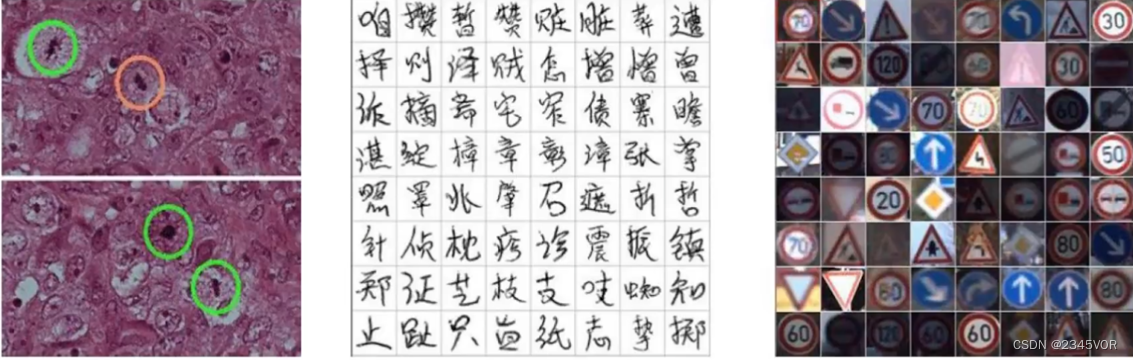 咱 攒 暂 赞 赃 脏 葬 遭
择 则 泽 贼 怎 增 憎 曾
诈 摘 斋 宅 窄 债 寨 瞻
湛 绽 樟 章 彰 漳 张 掌
照 罩 兆 肇 召 遮 折 哲
针 侦 枕 疹 诊 震 振 镇
郑 证 芝 枝 支 吱 蜘 知
止 趾 只 旨 纸 志 挚 掷
70 70 30
120 60 30
70 70 60
50
20
70 80
60 80
60 120 60 60
CSDN @2345VOR